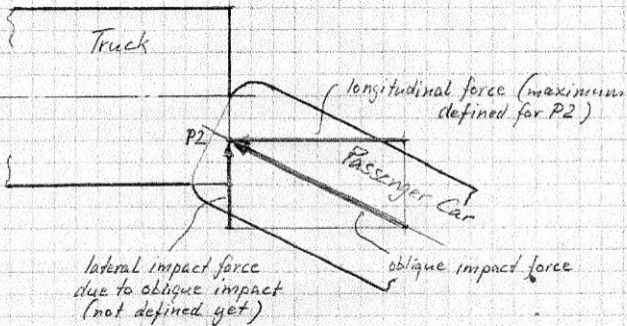 Truck
longitudinal force (maximum
defined for P2)
P2
Passenger Car
lateral impact force
due to oblique impact
(not defined yet)
oblique impact force